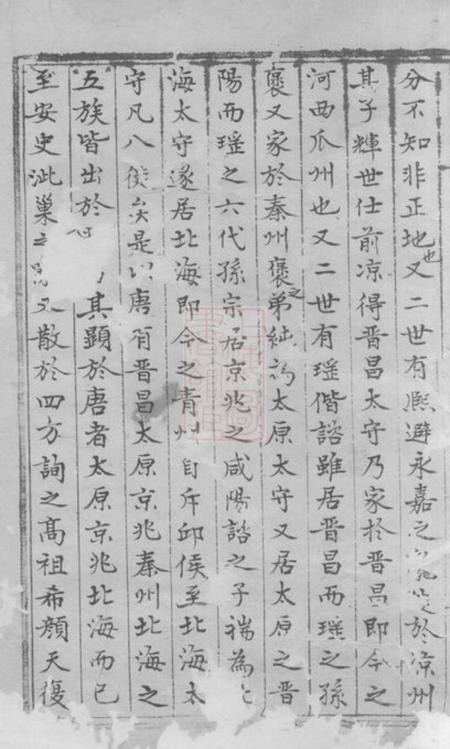 分不知非正地也又二世有熈避永嘉之於凉州
其子輝世仕前凉得晉昌太守乃家於晉昌即今之
河西瓜州也又二世有瑶偕諮雖居晉昌而瑶之孫
襃又家於秦州襃之弟紬為太原太守又居太原之晉
陽而瑶之六代孫宗居京兆之咸陽諮之子褍為
海太守遂居北海即今之青州自斥邱侯至北海太
守凡八矣是以唐有晉昌太原京兆秦州北海之
五族皆出於其顯於唐者太原京兆北海而已
至安史泚巢之又散於四方詢之髙祖布顔天復